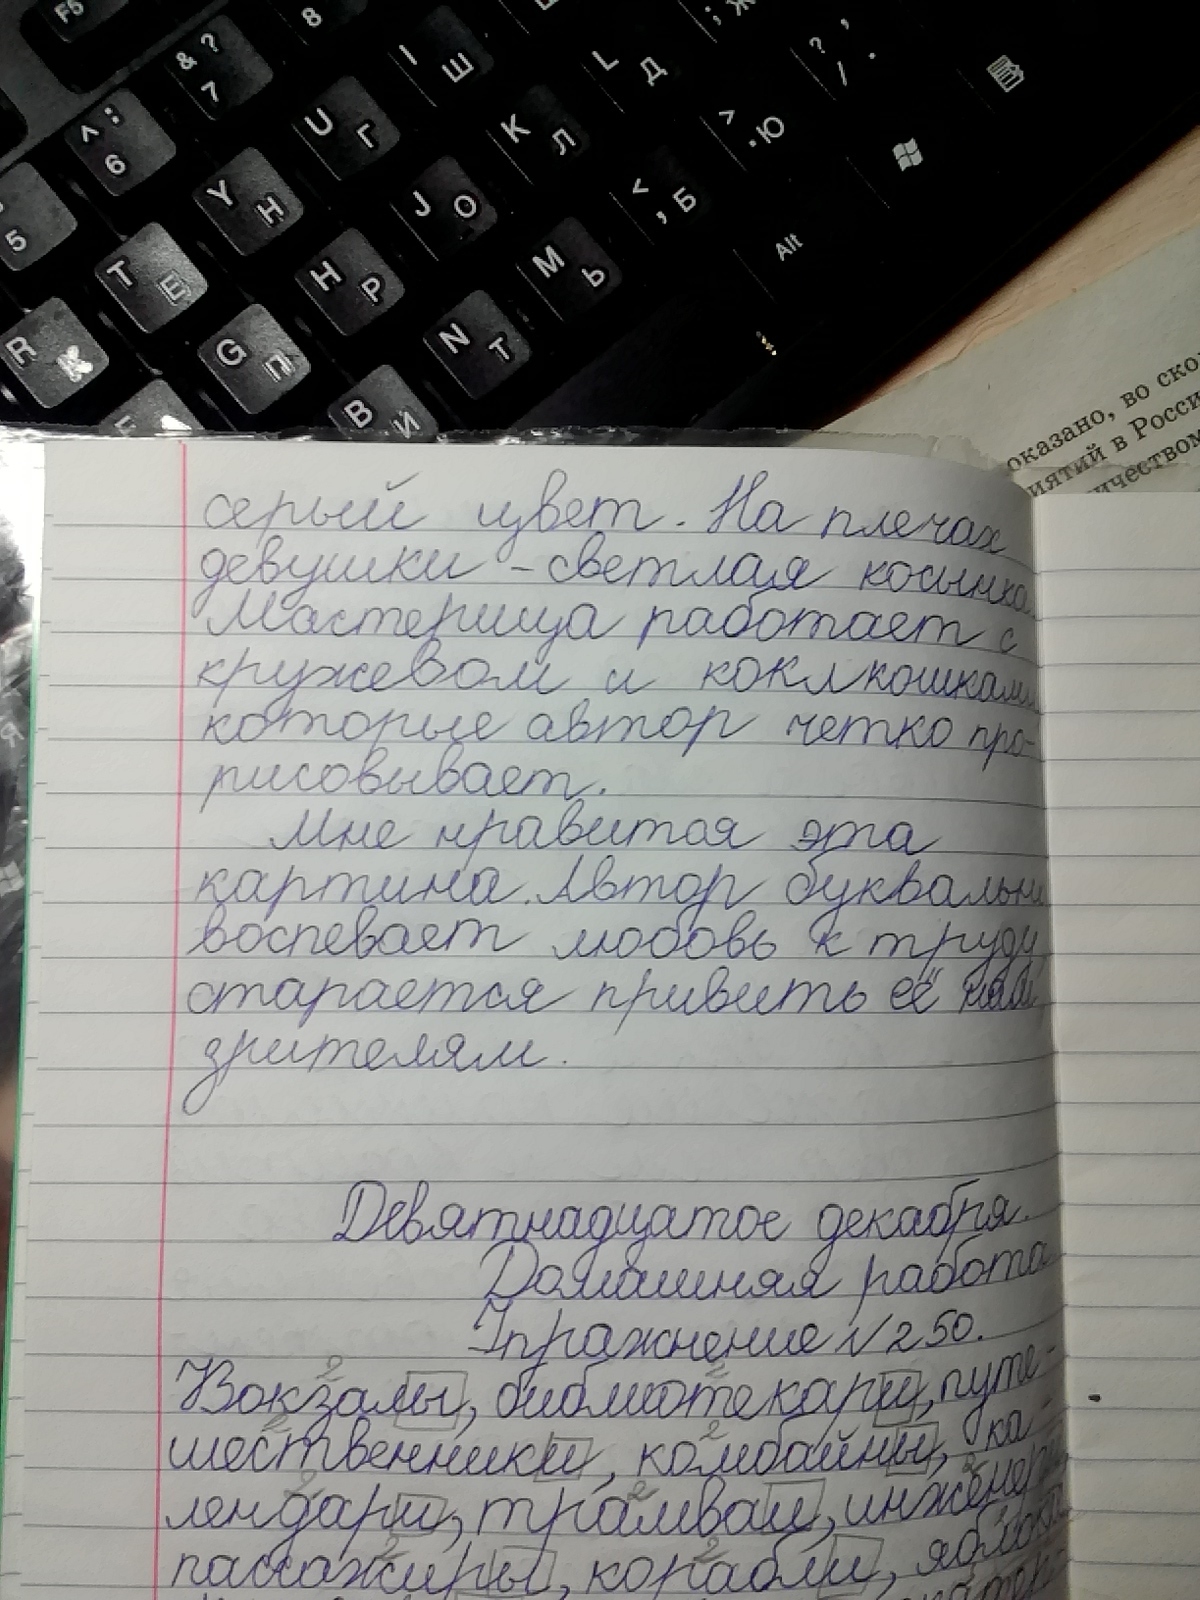 F5
8
Ш
& ?
7
I Ш
L Д
? ,
/ .
^ :
6
U Г
K Л
> . Ю
5
Y Н
J О
< , Б
T Е
H Р
M Ь
Alt
R К
G П
N Т
B И
оказано, во ско
иятий в Росси
ичеством
серый цвет. На плечах
девушки – светлая косынка
Мастерица работает с
кружевом и коклюшками
которые автор четко про-
рисовывает.
Мне нравится эта
картина. Автор буквальн
воспевает любовь к труду,
старается привить её
зрителям.
Девятнадцатое декабря.
Домашняя работа
Упражнение №250.
Вокзалы, библиотекари, путе-
шественники, комбайны, ка-
лендари, трамваи, инженеры
пассажиры, корабли, яблоки